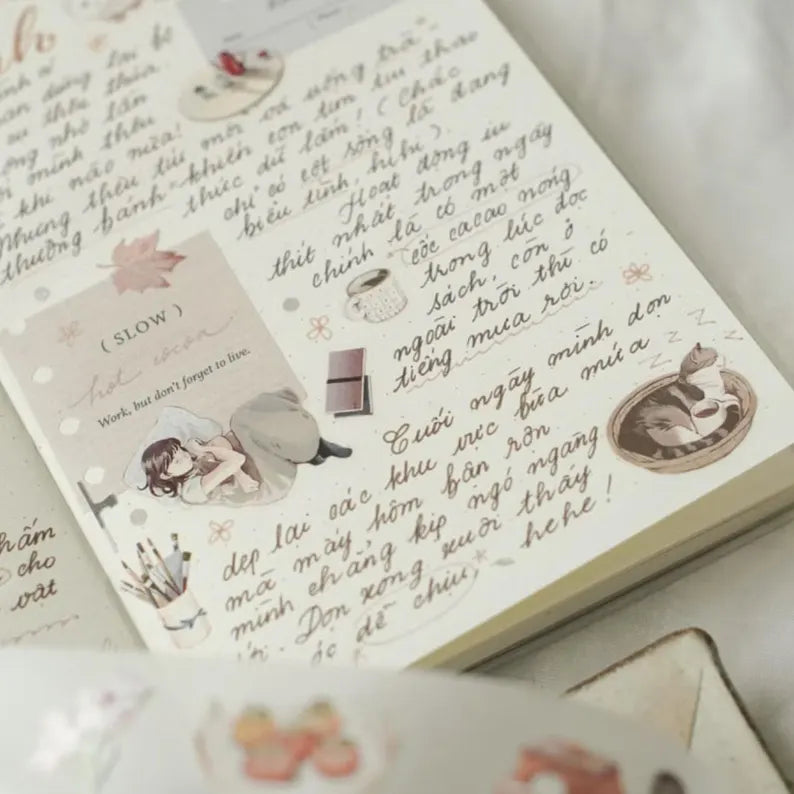 dừng lại
thêu thùa.
nhỏ lần
mình thêu
khi nào nữa!
Nhưng thêu túi mới và uống trà
thưởng bánh khiến con tim túi thao
thức dữ lắm! (Chắc
chỉ có cột sống là đang
biểu tình, hihi).
Hoạt động ưu
thít nhất trong ngày
chính là có một
cốc cacao nóng
trong lúc đọc
sách, còn ở
ngoài trời thì có
tiếng mưa rơi.
(SLOW)
hot cocoa
Work, but don't forget to live.
Cuối ngày mình dọn
dẹp lại các khu vực bừa mứa
mà mấy hôm bận rộn
mình chẳng kịp ngó ngàng
tới. Dọn xong xuôi thấy
dễ chịu, hehe!
z z z z z
hấm
cho
vật